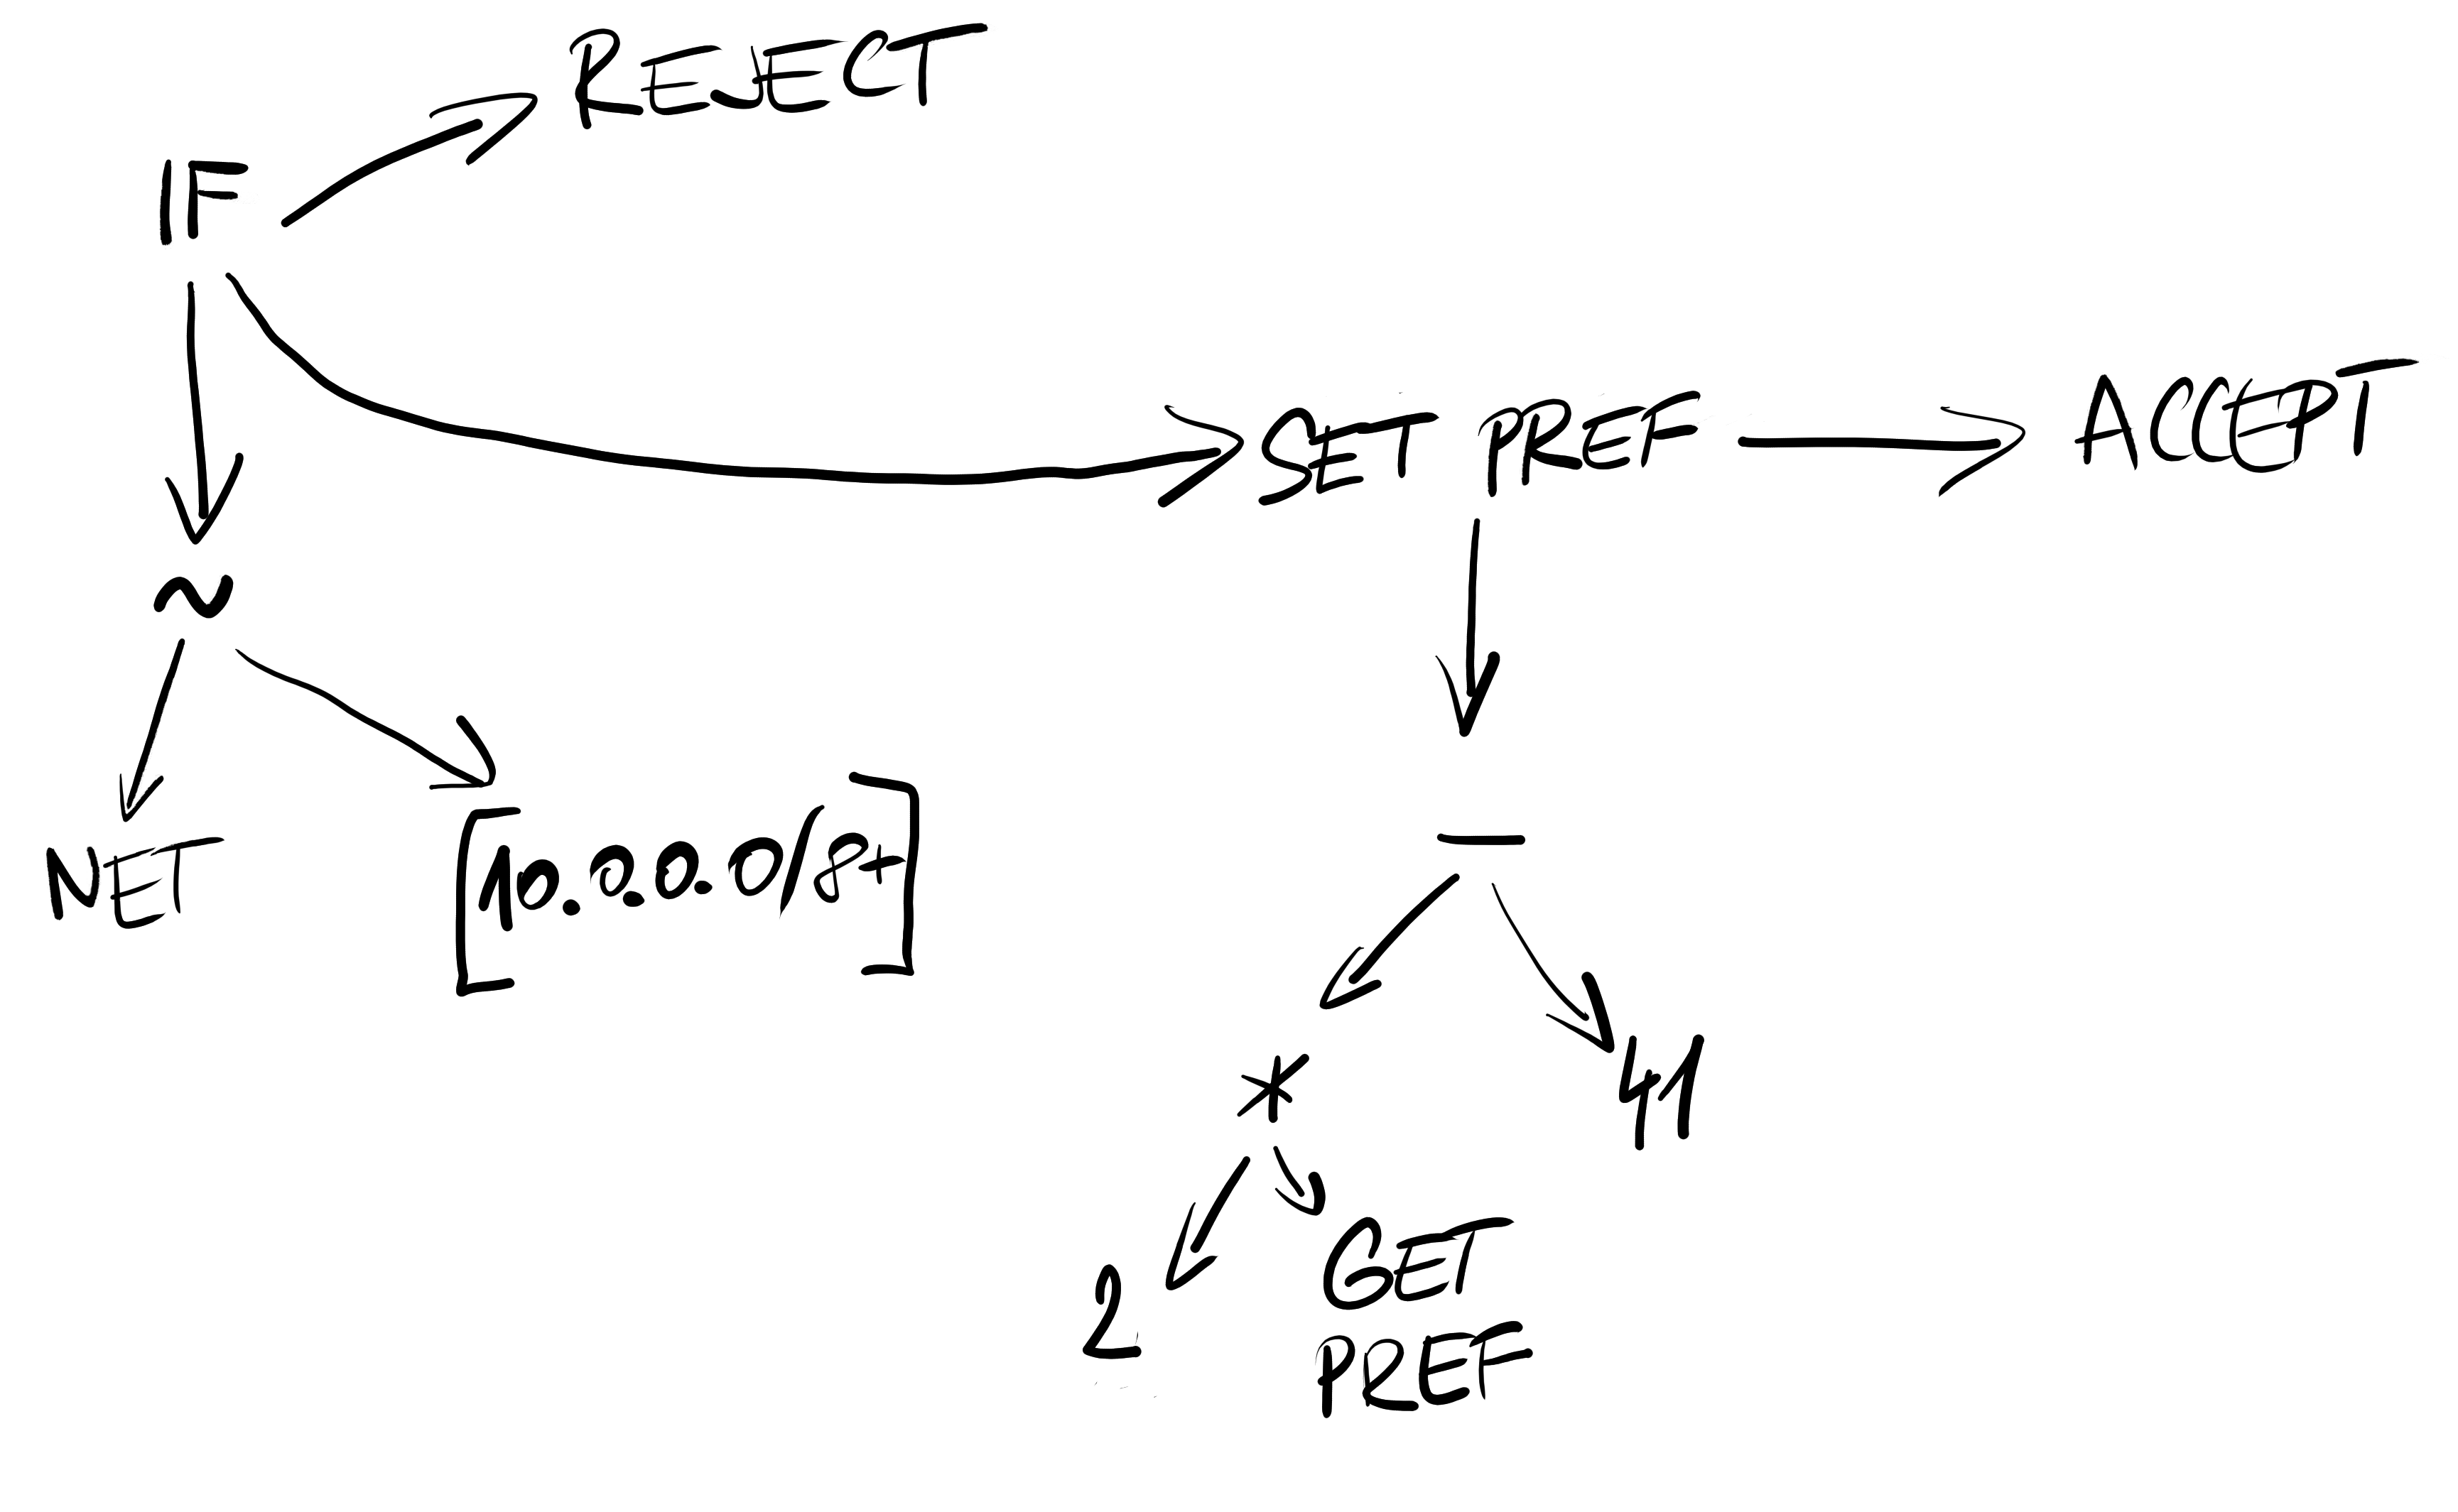 REJECT
IF
SET PREF
ACCEPT
~
NET
[10.0.0.0/8+]
-
*
41
2
GET
PREF